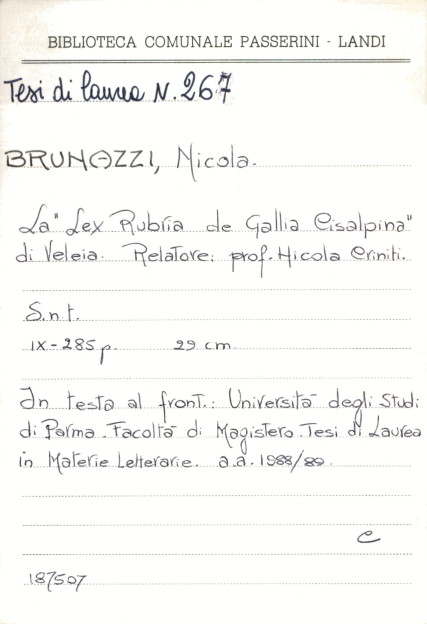 BIBLIOTECA COMUNALE PASSERINI - LANDI
Tesi di laurea N. 267
BRUNAZZI, Nicola.
La "Lex Rubria de Gallia Cisalpina"
di Veleia. Relatore: prof. Nicola Criniti.
S.n.t.
IX-285 p. 29 cm.
In testa al front.: Università degli Studi
di Parma. Facoltà di Magistero. Tesi di Laurea
in Materie Letterarie. a.a. 1988/89.
C
187507